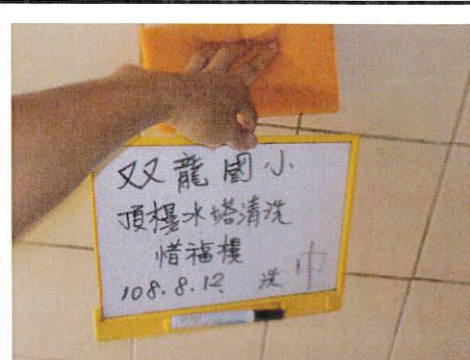 双龍國小
頂樓水塔清洗
惜福樓
108.8.12. 洗中